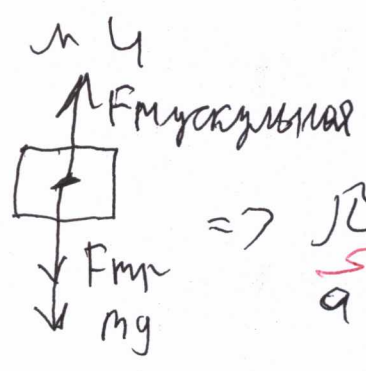 № 4
Fмускульная
=>
Fтр
mg
a